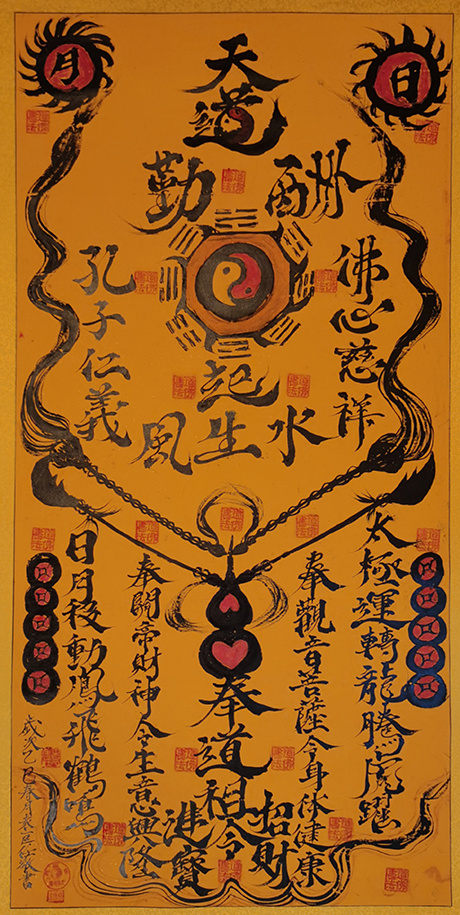 日
月
天道
酬勤
佛心慈祥
孔子仁義
風生水起
太極運轉龍騰虎躍
奉觀音菩薩令身体健康
奉道祖令
招財進寶
奉關帝財神令生意興隆
日月移動鳳飛鶴鳴
歲次乙巳